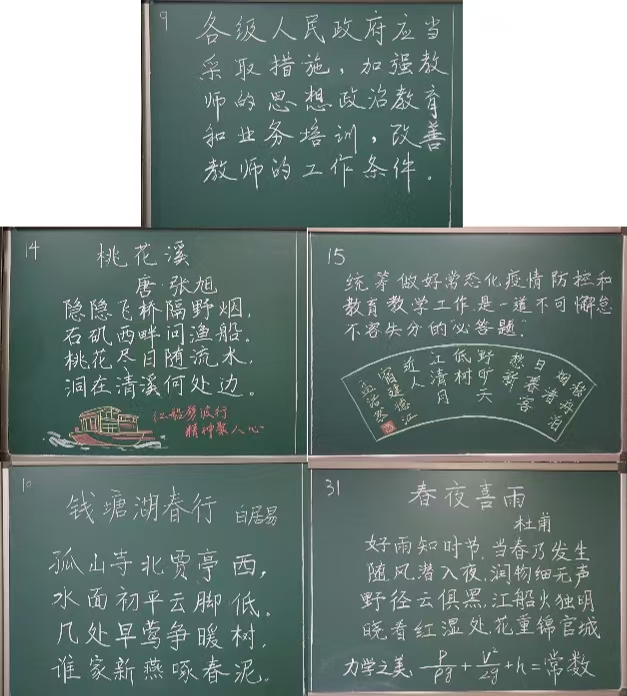 9
各级人民政府应当
采取措施，加强教
师的思想政治教育
和业务培训，改善
教师的工作条件。
14
桃花溪
唐·张旭
隐隐飞桥隔野烟，
石矶西畔问渔船。
桃花尽日随流水，
洞在清溪何处边。
江船劈波行
精神聚人心
15
统筹做好常态化疫情防控和
教育教学工作是一道不可懈怠
不容失分的必答题。
移舟泊
烟渚
日暮客
愁新
野旷天
低树
江清月
近人
宿建德江
孟浩然
10
钱塘湖春行 白居易
孤山寺北贾亭西，
水面初平云脚低。
几处早莺争暖树，
谁家新燕啄春泥。
31
春夜喜雨
杜甫
好雨知时节，当春乃发生
随风潜入夜，润物细无声
野径云俱黑，江船火独明
晓看红湿处，花重锦官城
力学之美：P/ρg + V²/2g + h = 常数